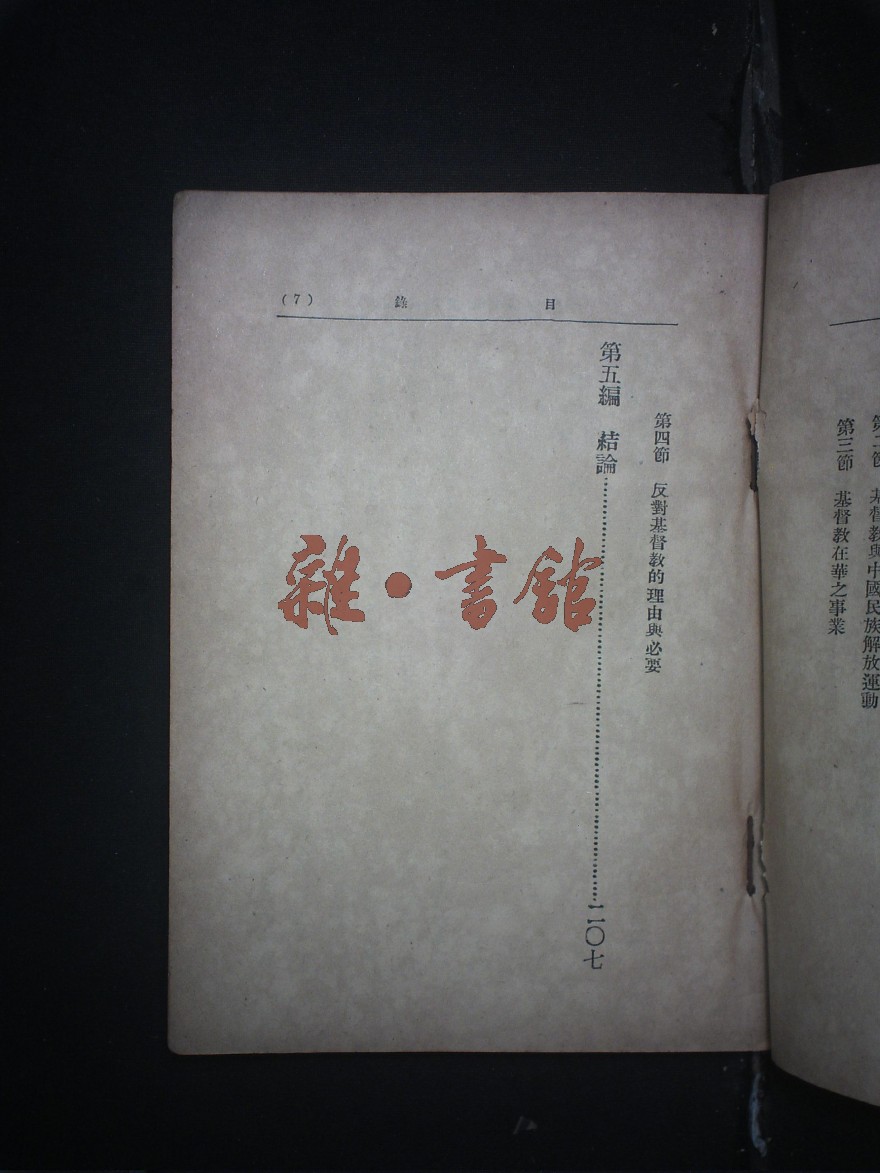 第二節　基督教與中國民族解放運動
第三節　基督教在華之事業
目錄
(7)
第四節　反對基督教的理由與必要
第五編　結論……二〇七
雜・書館